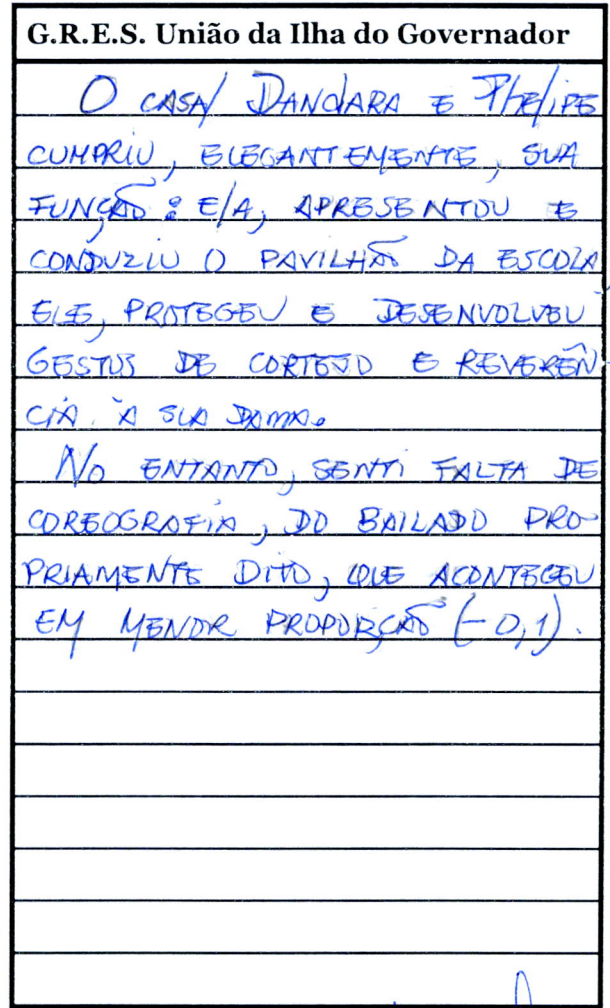 G.R.E.S. União da Ilha do Governador
O CASAL DANDARA E PHELIPE
CUMPRIU, ELEGANTEMENTE, SUA
FUNÇÃO: ELA, APRESENTOU E
CONDUZIU O PAVILHÃO DA ESCOLA
ELE, PROTEGEU E DESENVOLVEU
GESTUS DE CORTEJO E REVERÊN
CIA À SUA DAMA.
NO ENTANTO, SENTI FALTA DE
COREOGRAFIA, DO BAILADO PRO-
PRIAMENTE DITO, QUE ACONTECEU
EM MENOR PROPORÇÃO (-0,1).